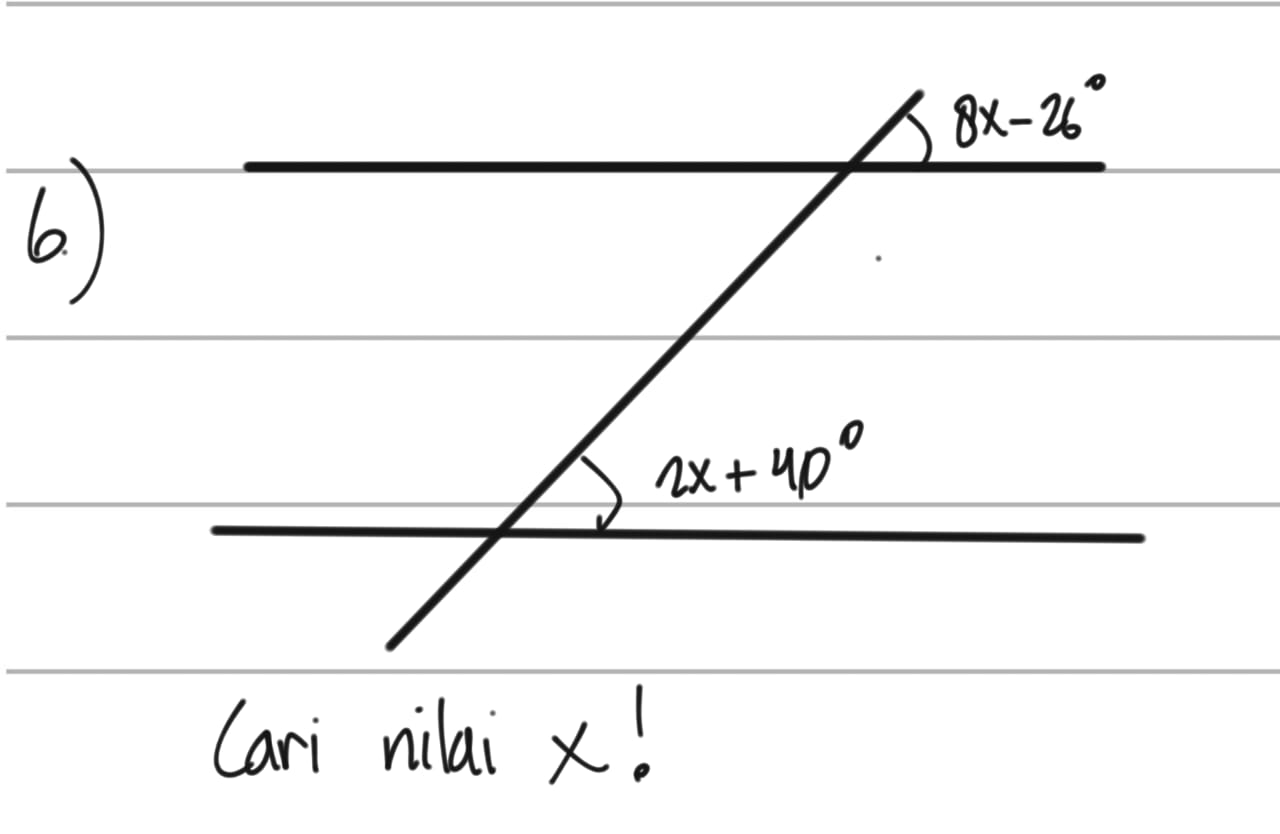 8x-26°
6)
2x+40°
Cari nilai x!